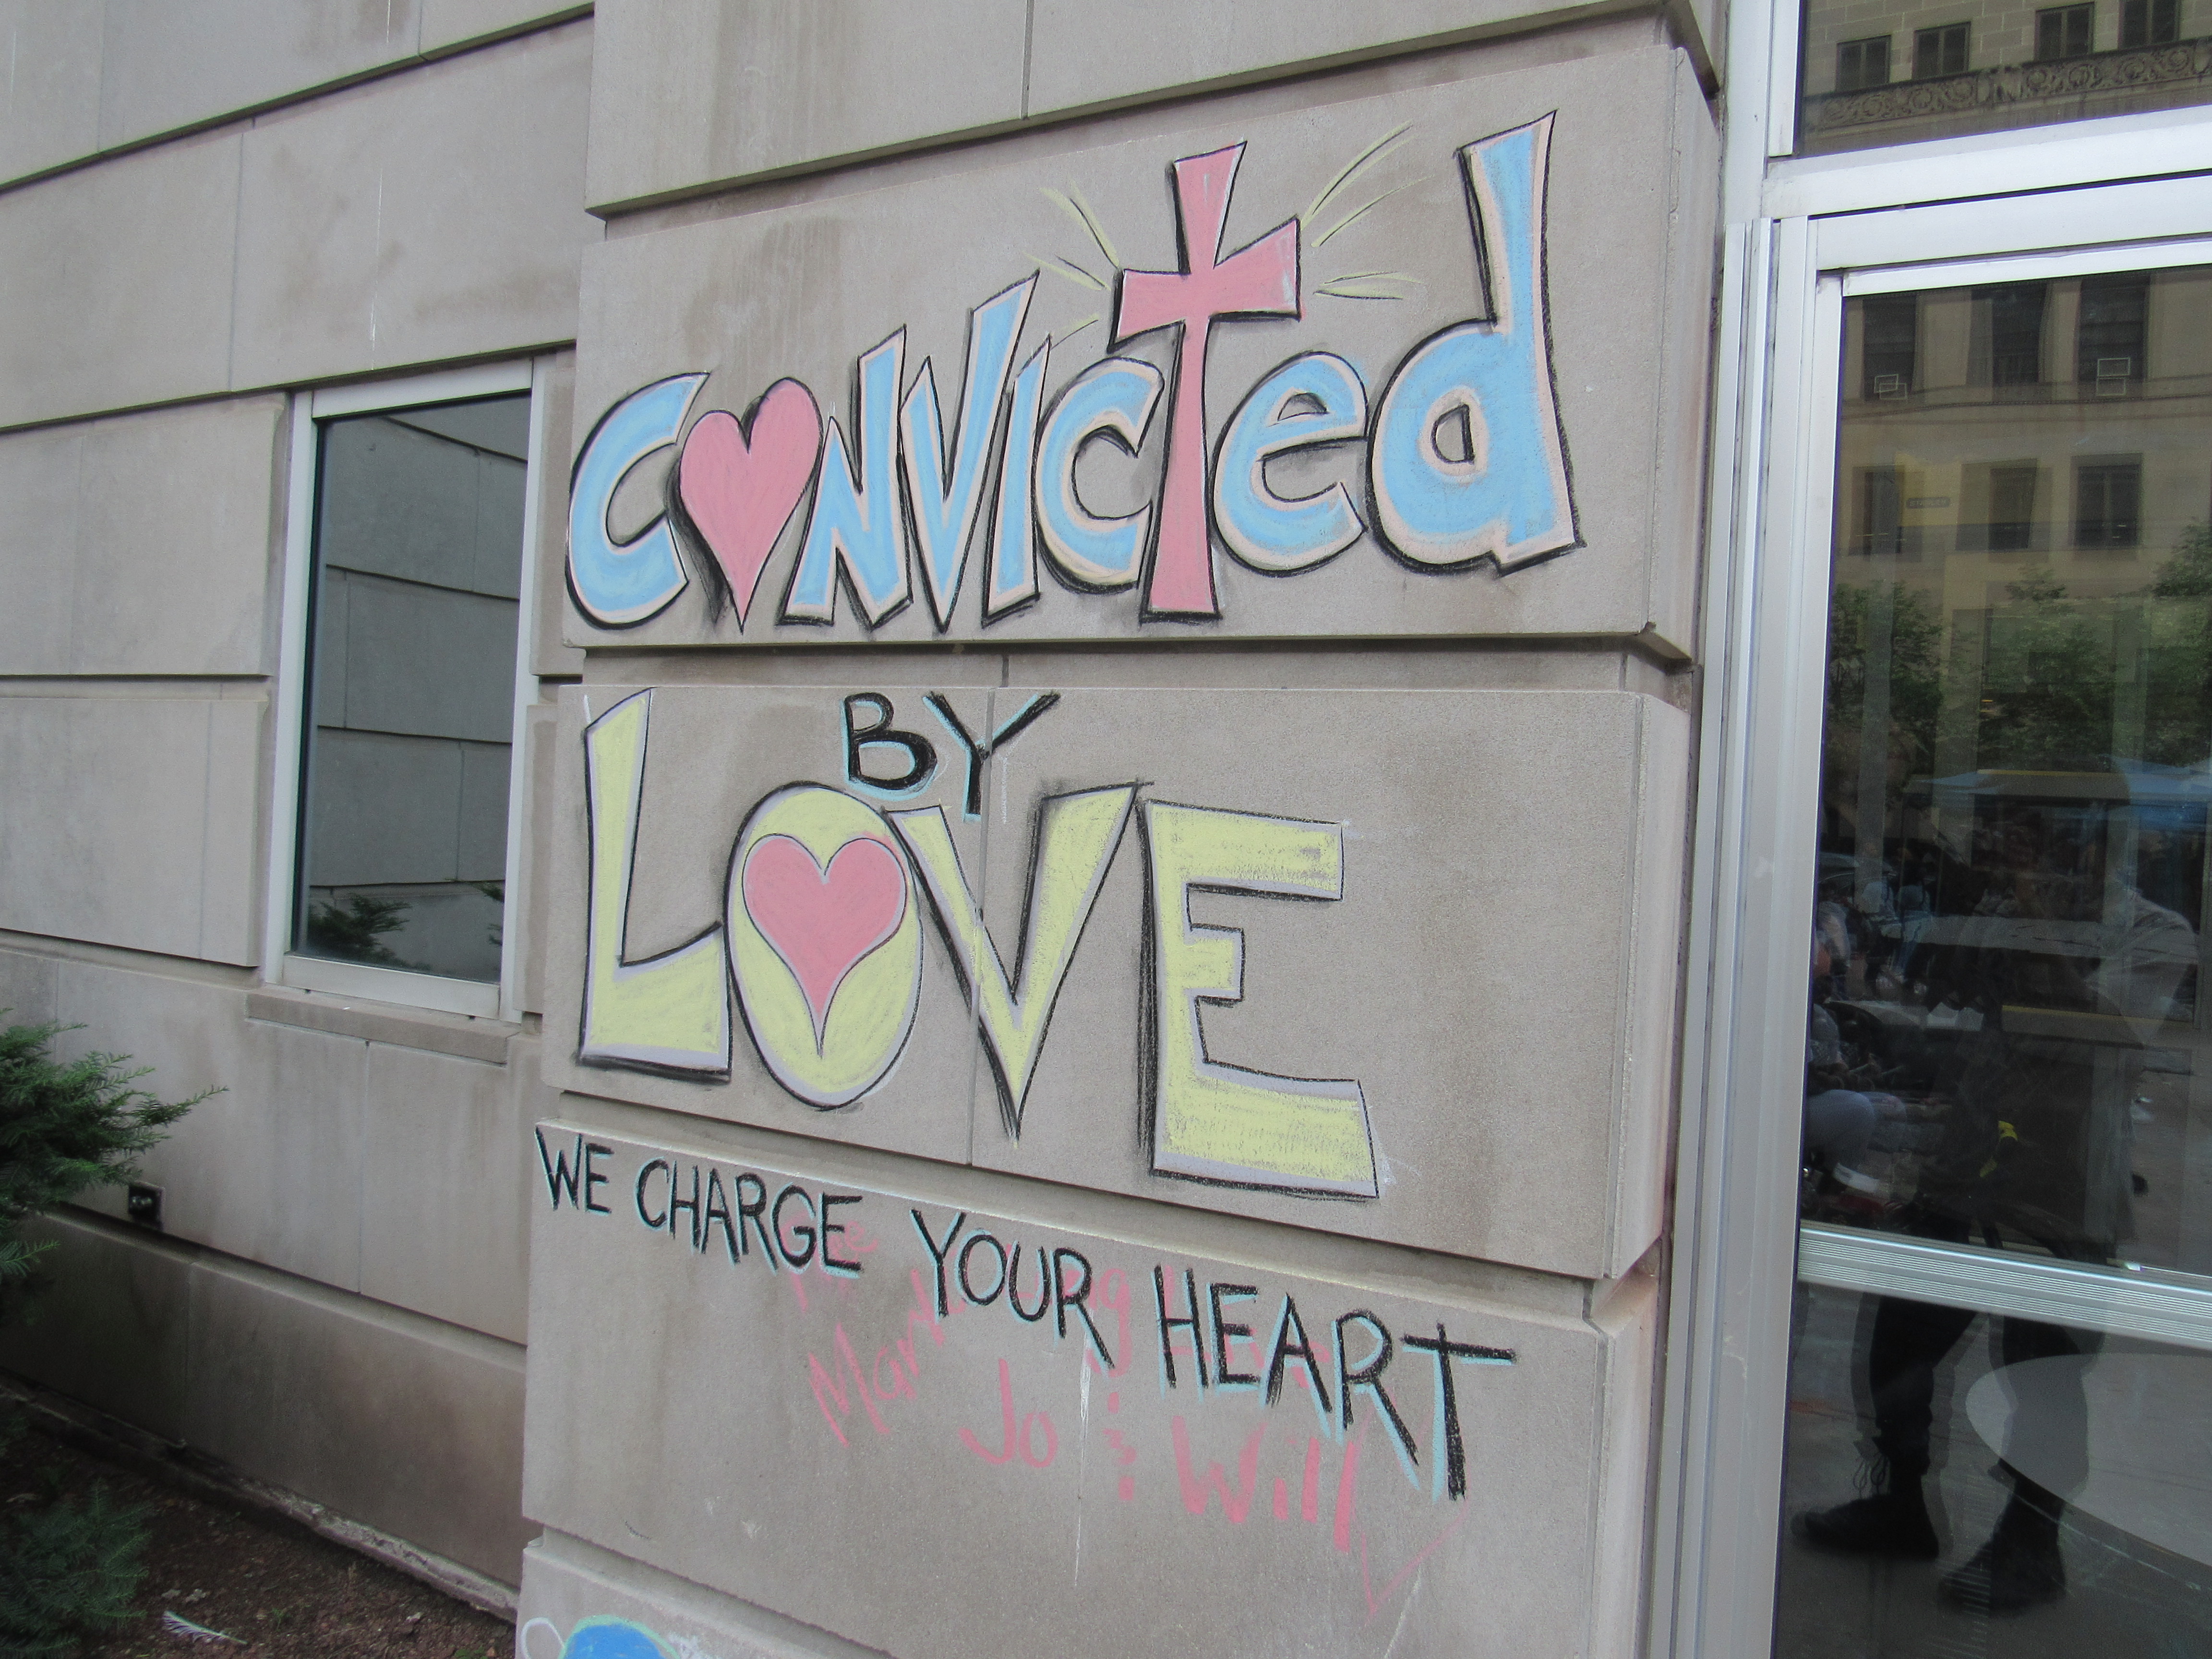 Convicted
BY
LOVE
WE CHARGE YOUR HEART
Mar
Jo & Will